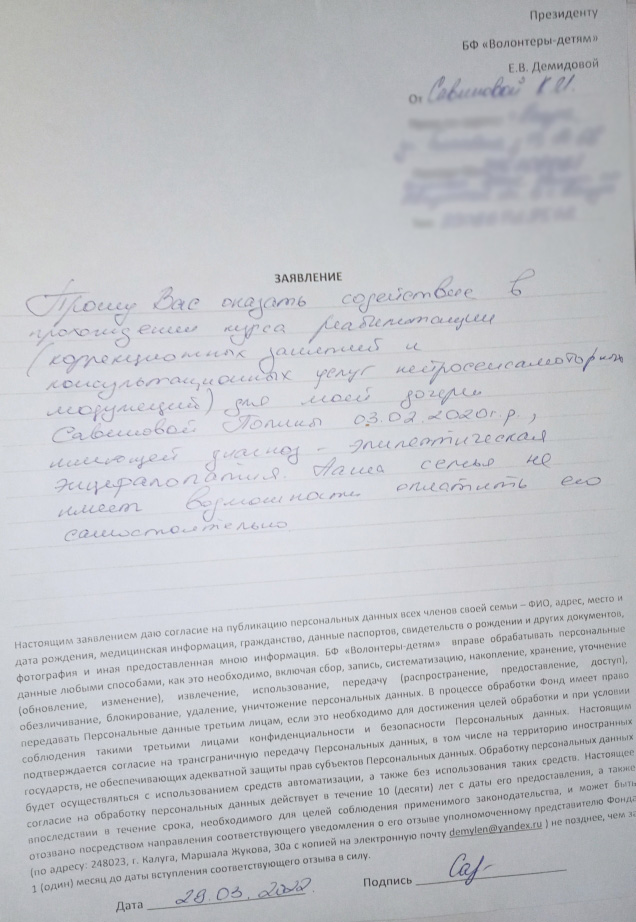 Президенту
БФ «Волонтеры-детям»
Е.В. Демидовой
От Савиновой К.И.
ЗАЯВЛЕНИЕ
Прошу Вас оказать содействие в
прохождении курса реабилитации
(коррекционных занятий и
консультационных услуг нейросенсомоторных
модуляций) для моей дочери
Савиновой Полины 03.02.2020г.р.,
имеющей диагноз - эпилептическая
энцефалопатия. Наша семья не
имеет возможности оплатить его
самостоятельно
Настоящим заявлением даю согласие на публикацию персональных данных всех членов своей семьи – ФИО, адрес, место и
дата рождения, медицинская информация, гражданство, данные паспортов, свидетельств о рождении и других документов,
фотография и иная предоставленная мною информация. БФ «Волонтеры-детям» вправе обрабатывать персональные
данные любыми способами, как это необходимо, включая сбор, запись, систематизацию, накопление, хранение, уточнение
(обновление, изменение), извлечение, использование, передачу (распространение, предоставление, доступ),
обезличивание, блокирование, удаление, уничтожение персональных данных. В процессе обработки Фонд имеет право
передавать Персональные данные третьим лицам, если это необходимо для достижения целей обработки и при условии
соблюдения такими третьими лицами конфиденциальности и безопасности Персональных данных. Настоящим
подтверждается согласие на трансграничную передачу Персональных данных, в том числе на территорию иностранных
государств, не обеспечивающих адекватной защиты прав субъектов Персональных данных. Обработку персональных данных
будет осуществляться с использованием средств автоматизации, а также без использования таких средств. Настоящее
согласие на обработку персональных данных действует в течение 10 (десяти) лет с даты его предоставления, а также
впоследствии в течение срока, необходимого для целей соблюдения применимого законодательства, и может быть
отозвано посредством направления соответствующего уведомления о его отзыве уполномоченному представителю Фонда
(по адресу: 248023, г. Калуга, Маршала Жукова, 30а с копией на электронную почту demylen@yandex.ru ) не позднее, чем за
1 (один) месяц до даты вступления соответствующего отзыва в силу.
Дата 29.03.2022. Подпись